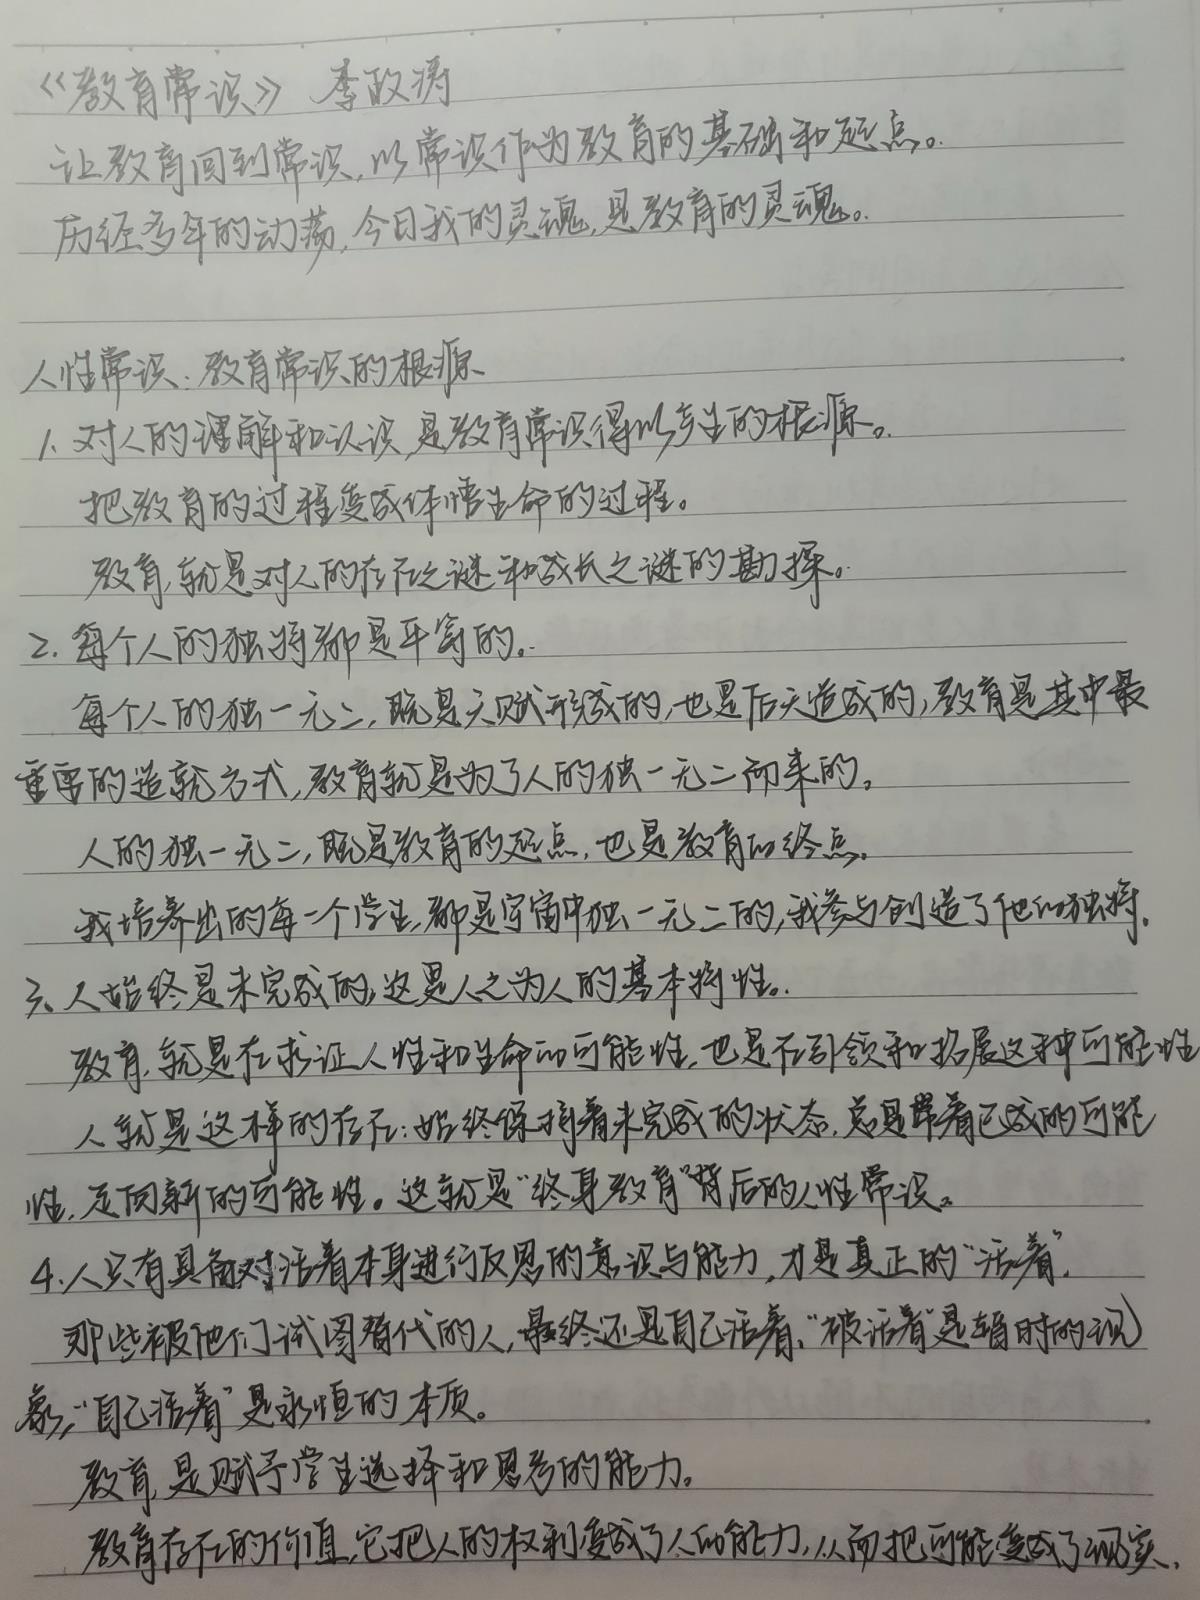 《教育常识》 李政涛
让教育回到常识，以常识作为教育的基础和起点。
历经多年的动荡，今日我的灵魂，是教育的灵魂。
人性常识：教育常识的根源
1. 对人的理解和认识，是教育常识得以产生的根源。
把教育的过程变成体悟生命的过程。
教育，就是对人的存在之谜和成长之谜的勘探。
2. 每个人的独特都是平等的。
每个人的独一无二，既是天赋形成的，也是后天造成的，教育是其中最
重要的造就方式，教育就是为了人的独一无二而来的。
人的独一无二，既是教育的起点，也是教育的终点。
我培养出的每一个学生，都是宇宙中独一无二的，我参与创造了他的独特。
3、人始终是未完成的，这是人之为人的基本特性。
教育，就是在求证人性和生命的可能性，也是在引领和拓展这种可能性
人就是这样的存在：始终保持着未完成的状态，总是带着已成的可能
性，走向新的可能性。这就是“终身教育”背后的人性常识。
4.人只有具备对活着本身进行反思的意识与能力，才是真正的“活着”。
那些被他们试图替代的人，最终还是自己活着，“被活着”是暂时的现
象，“自己活着”是永恒的本质。
教育，是赋予学生选择和思考的能力。
教育存在的价值，它把人的权利变成了人的能力，从而把可能变成了现实。